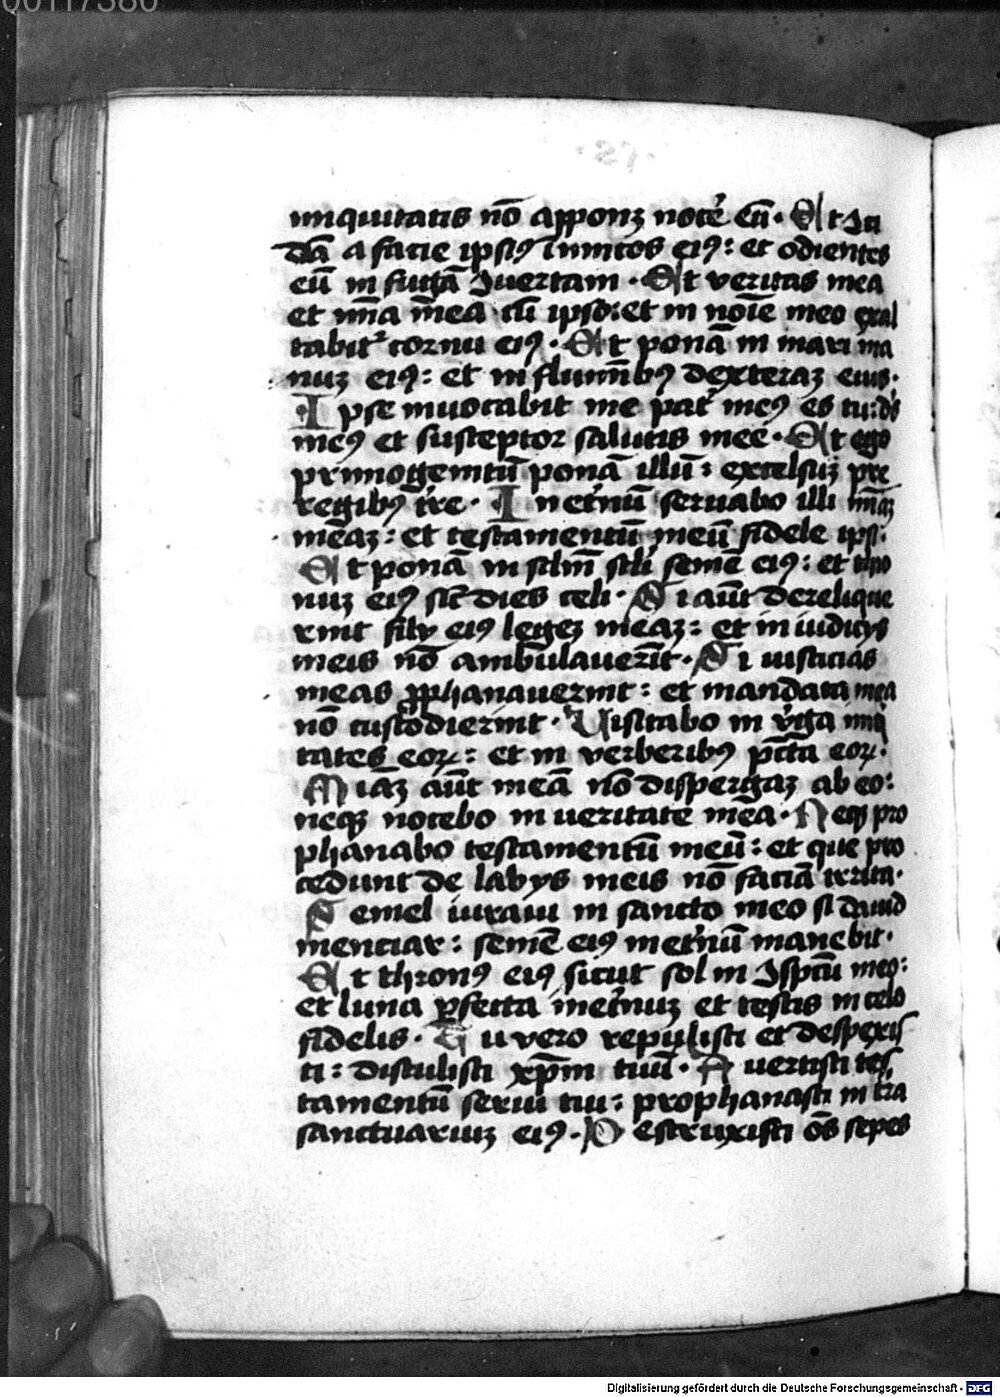 00117380
iniquitatis nō apponz nocē eū. Et Jci
dā a facie ipsiꝰ inimicos eiꝰ: et odientes
eū in fugā Jvertam. Et veritas mea
et mīa mea cū ipso: et in noīe meo exal
tabitᷣ cornu eiꝰ. Et ponā in mari ma
nuz eiꝰ: et in fluminībꝰ dexteraz eius.
Ipse invocabit me pat᷑ meꝰ es tu: dꝰs
meꝰ et susceptor salutis mee. Et ego
primogenitū ponā illū: excelsuz pre
regibꝰ tr̄e. In etnū seruabo illi mīaz
meaz: et testamentū meū fidele ipsi.
Et ponā in sclm̄ scl̄i semē eiꝰ: et thro
nuz eiꝰ sic̄ dies celi. Si aūt derelique
rint filij eiꝰ legez meaz: et in iudicijs
meis nō ambulauerīt. Si iusticias
meas ꝓphanauerint: et mandata mea
nō custodierint. Visitabo in v̄ga iniq̄
tates eoꝝ: et in verberibꝰ pctā eoꝝ.
Miāz aūt meā nō dispergaz ab eo:
neqꝫ nocebo in ueritate mea. Neqꝫ pro
phanabo testamentū meū: et que pro
cedunt de labijs meis nō faciā irrita.
Semel iuraui in sancto meo si dauid
menciar: semē eiꝰ inetnū manebit.
Et thronꝰ eiꝰ sicut sol in Jspctū meo:
et luna ꝑfecta inetnuz et testis in celo
fidelis. Tu vero repulisti et despexis
ti: distulisti xpm̄ tuū. Auertisti tes
tamentū serui tui: prophanasti in tr̄a
sanctuariuz eiꝰ. Destruxisti oēs sepes
Digitalisierung gefördert durch die Deutsche Forschungsgemeinschaft - DFG